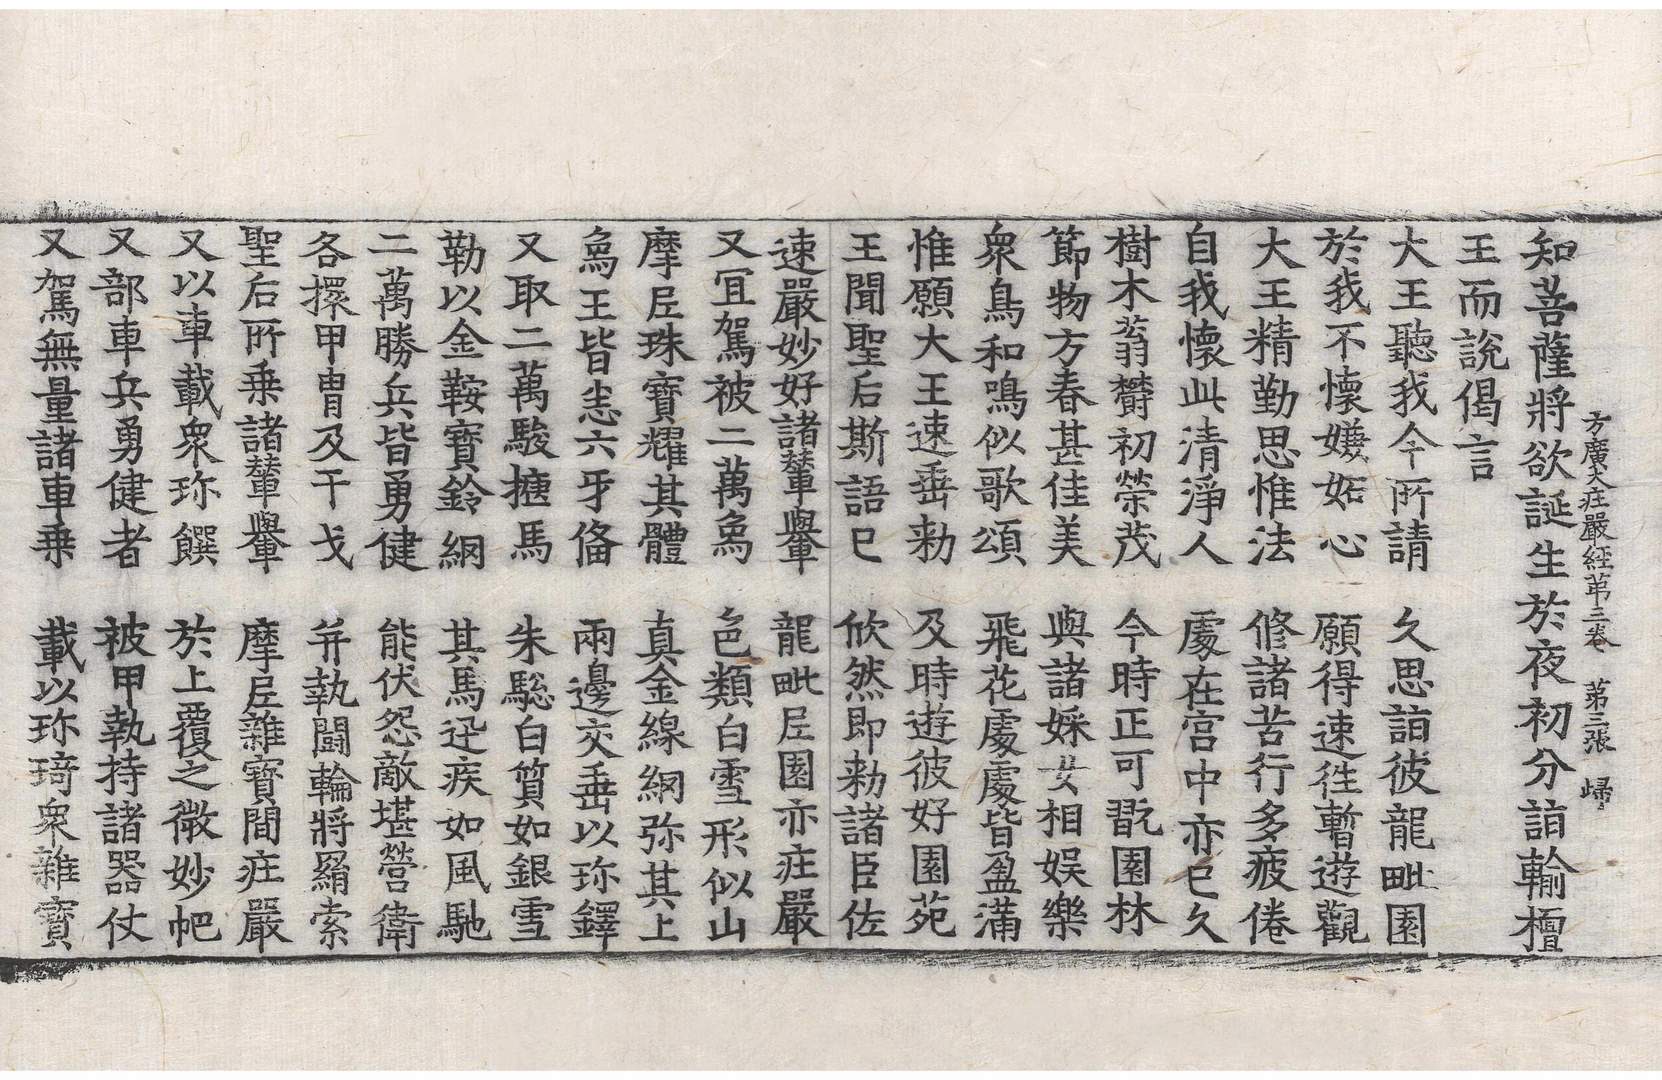 方廣大庄嚴経苐三卷　苐三張　歸
知菩薩將欲誕生於夜初分詣輸檀
王而說偈言
大王聽我今所請　久思詣彼龍毗園
於我不懷嫌妬心　願得速徃暫遊觀
大王精勤思惟法　修諸苦行多疲倦
自我懷此清淨人　處在宮中亦已久
樹木蓊欝初榮茂　今時正可翫園林
節物方春甚佳美　與諸婇女相娛樂
衆鳥和鳴似歌頌　飛花處處皆盈滿
惟願大王速垂勑　及時遊彼好園苑
王聞聖后斯語已　欣然即勑諸臣佐
速嚴妙好諸輦轝　龍毗尼園亦庄嚴
又冝駕被二萬象　色類白雪形似山
摩尼珠寶耀其體　真金線網弥其上
象王皆悉六牙俻　兩邊交垂以珎鐸
又取二萬駿捷馬　朱騣白質如銀雪
勒以金鞍寶鈴網　其馬迅疾如風馳
二萬勝兵皆勇健　能伏怨敵堪營衛
各擐甲胄及干戈　并執鬪輪將羂索
聖后所乗諸輦轝　摩尼雜寶間庄嚴
又以車載衆珎饌　於上覆之微妙帊
又部車兵勇健者　被甲執持諸器仗
又駕無量諸車乗　載以珎琦衆雜寶